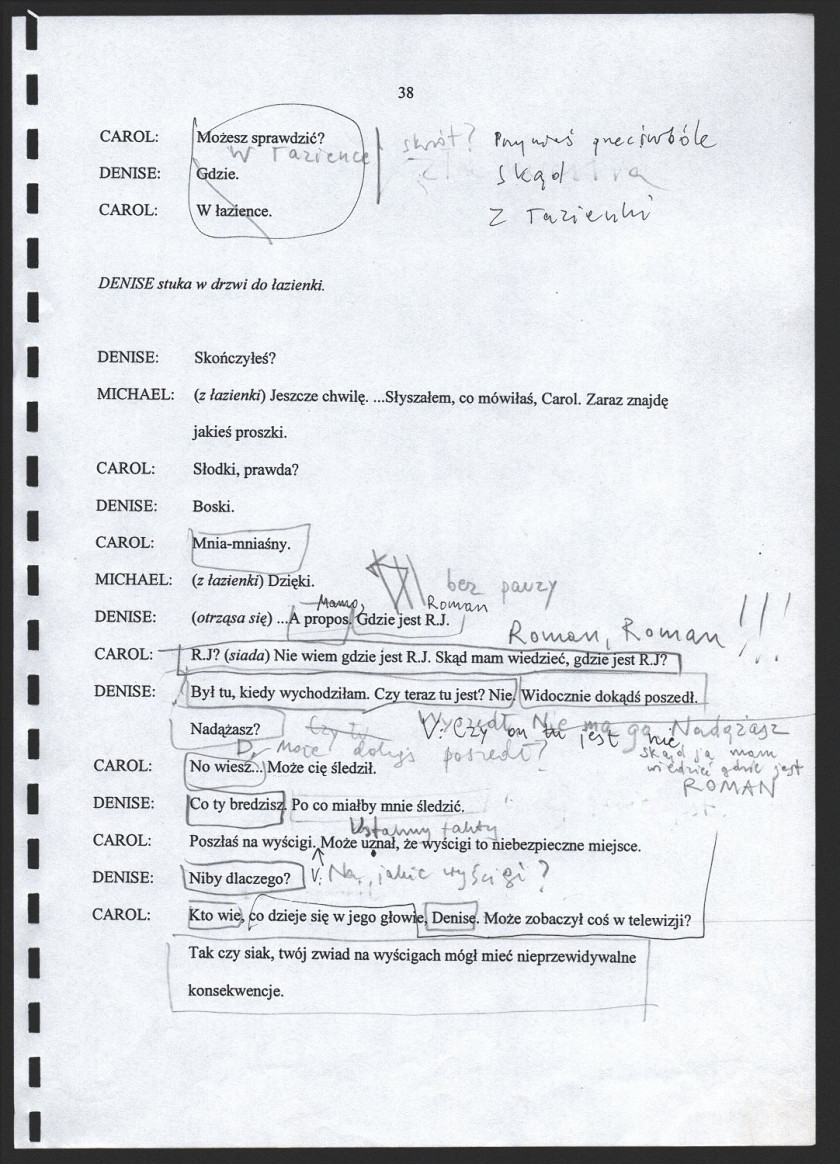 38
CAROL: Możesz sprawdzić? skrót? Przynieś przeciwbóle
w łazience
DENISE: Gdzie. Skąd
CAROL: W łazience. Z łazienki
DENISE stuka w drzwi do łazienki.
DENISE: Skończyłeś?
MICHAEL: (z łazienki) Jeszcze chwilę. ...Słyszałem, co mówiłaś, Carol. Zaraz znajdę
jakieś proszki.
CAROL: Słodki, prawda?
DENISE: Boski.
CAROL: Mnia-mniaśny.
MICHAEL: (z łazienki) Dzięki. bez pauzy
Mamo, Roman
DENISE: (otrząsa się) ...A propos. Gdzie jest R.J.
Roman, Roman !!!
CAROL: R.J? (siada) Nie wiem gdzie jest R.J. Skąd mam wiedzieć, gdzie jest R.J?
DENISE: Był tu, kiedy wychodziłam. Czy teraz tu jest? Nie. Widocznie dokądś poszedł.
Nadążasz? Czy ty Wyszedł. Nie ma go. Nadążasz
V. Czy on tu jest nie
D. Może dokądś poszedł? skąd ja mam
CAROL: No wiesz... Może cię śledził. wiedzieć gdzie jest
ROMAN
DENISE: Co ty bredzisz. Po co miałby mnie śledzić.
Ustalmy fakty
CAROL: Poszłaś na wyścigi. Może uznał, że wyścigi to niebezpieczne miejsce.
DENISE: Niby dlaczego? V. Na jakie wyścigi?
CAROL: Kto wie, co dzieje się w jego głowie, Denise. Może zobaczył coś w telewizji?
Tak czy siak, twój zwiad na wyścigach mógł mieć nieprzewidywalne
konsekwencje.